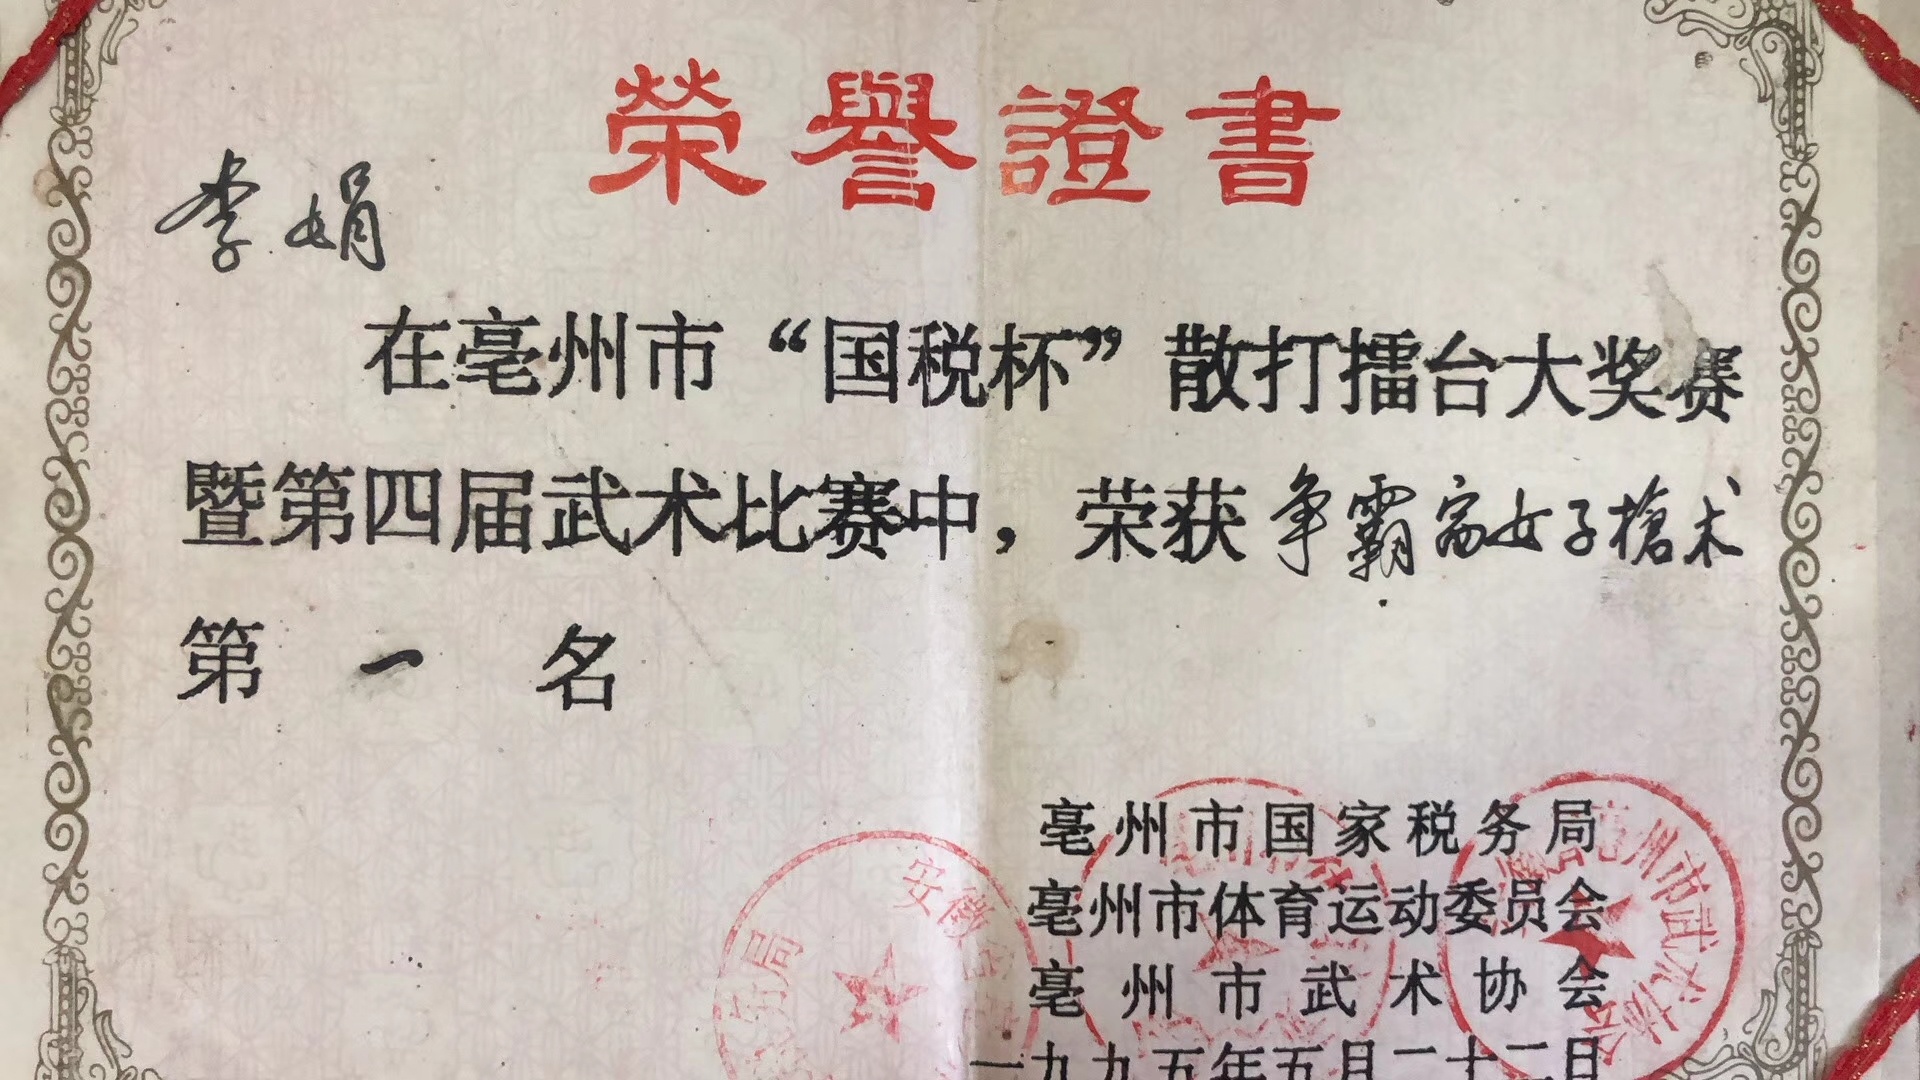 榮譽證書
李娟
在亳州市“国税杯”散打擂台大奖赛
暨第四届武术比赛中，荣获争霸赛女子槍术
第一名
亳州市国家税务局
亳州市体育运动委员会
亳州市武术协会
一九九五年五月二十二日
安徽省
局
亳州市武术协会